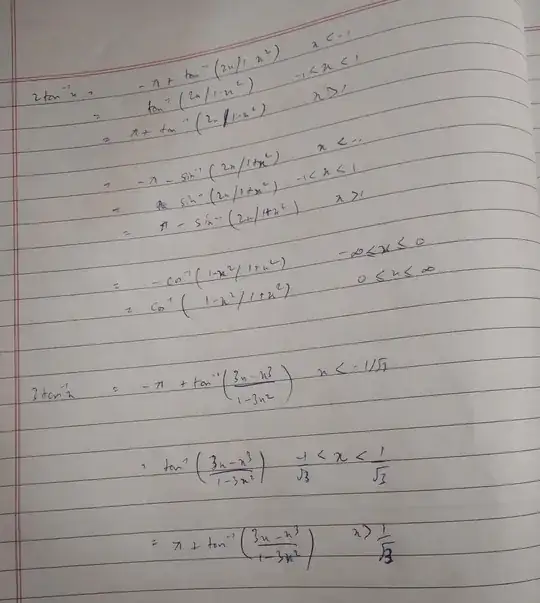 2tan⁻¹x = -π + tan⁻¹(2x/1-x²) x < -1
= tan⁻¹(2x/1-x²) -1 < x < 1
= π + tan⁻¹(2x/1-x²) x > 1
= -π - sin⁻¹(2x/1+x²) x < -1
= sin⁻¹(2x/1+x²) -1 < x < 1
= π - sin⁻¹(2x/1+x²) x > 1
= -cos⁻¹(1-x²/1+x²) -∞ ≤ x ≤ 0
= cos⁻¹(1-x²/1+x²) 0 ≤ x ≤ ∞
3tan⁻¹x = -π + tan⁻¹((3x-x³)/(1-3x²)) x < -1/√3
= tan⁻¹((3x-x³)/(1-3x²)) -1/√3 < x < 1/√3
= π + tan⁻¹((3x-x³)/(1-3x²)) x > 1/√3